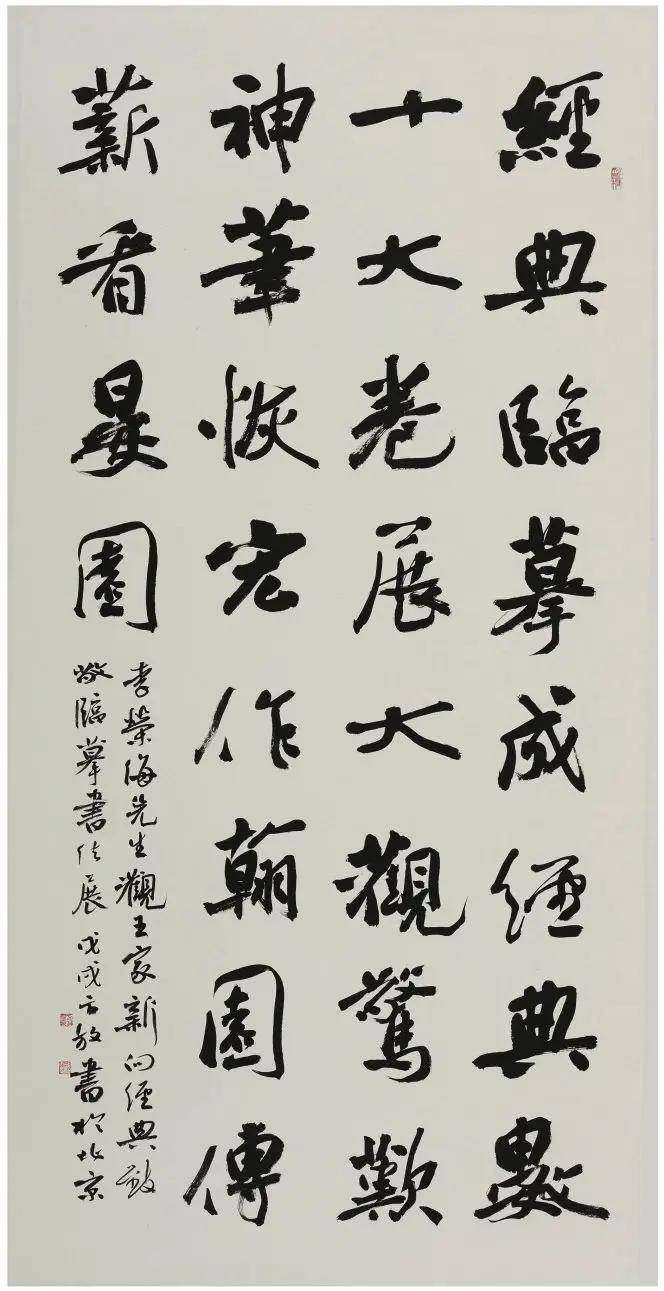 經典臨摹成經典數
十大卷展大觀驚歎
神筆恢宏作翰園傳
薪看晏園
李榮海先生觀王家新向經典致
敬臨摹書法展 戊戌 書於北京